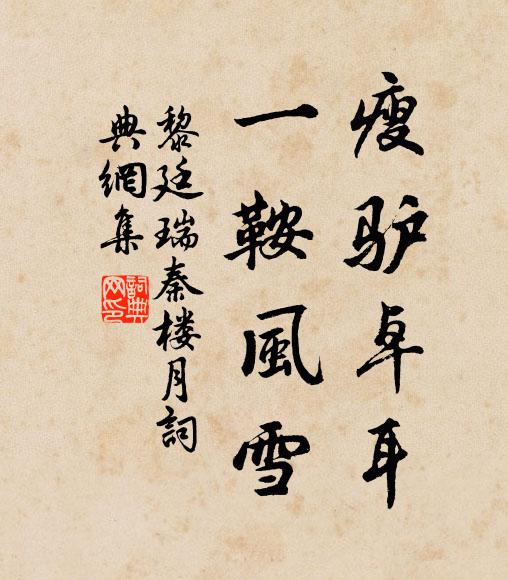 瘦驴卓耳
一鞍風雪
黎廷瑞秦楼月詞
典網集
詞典网印